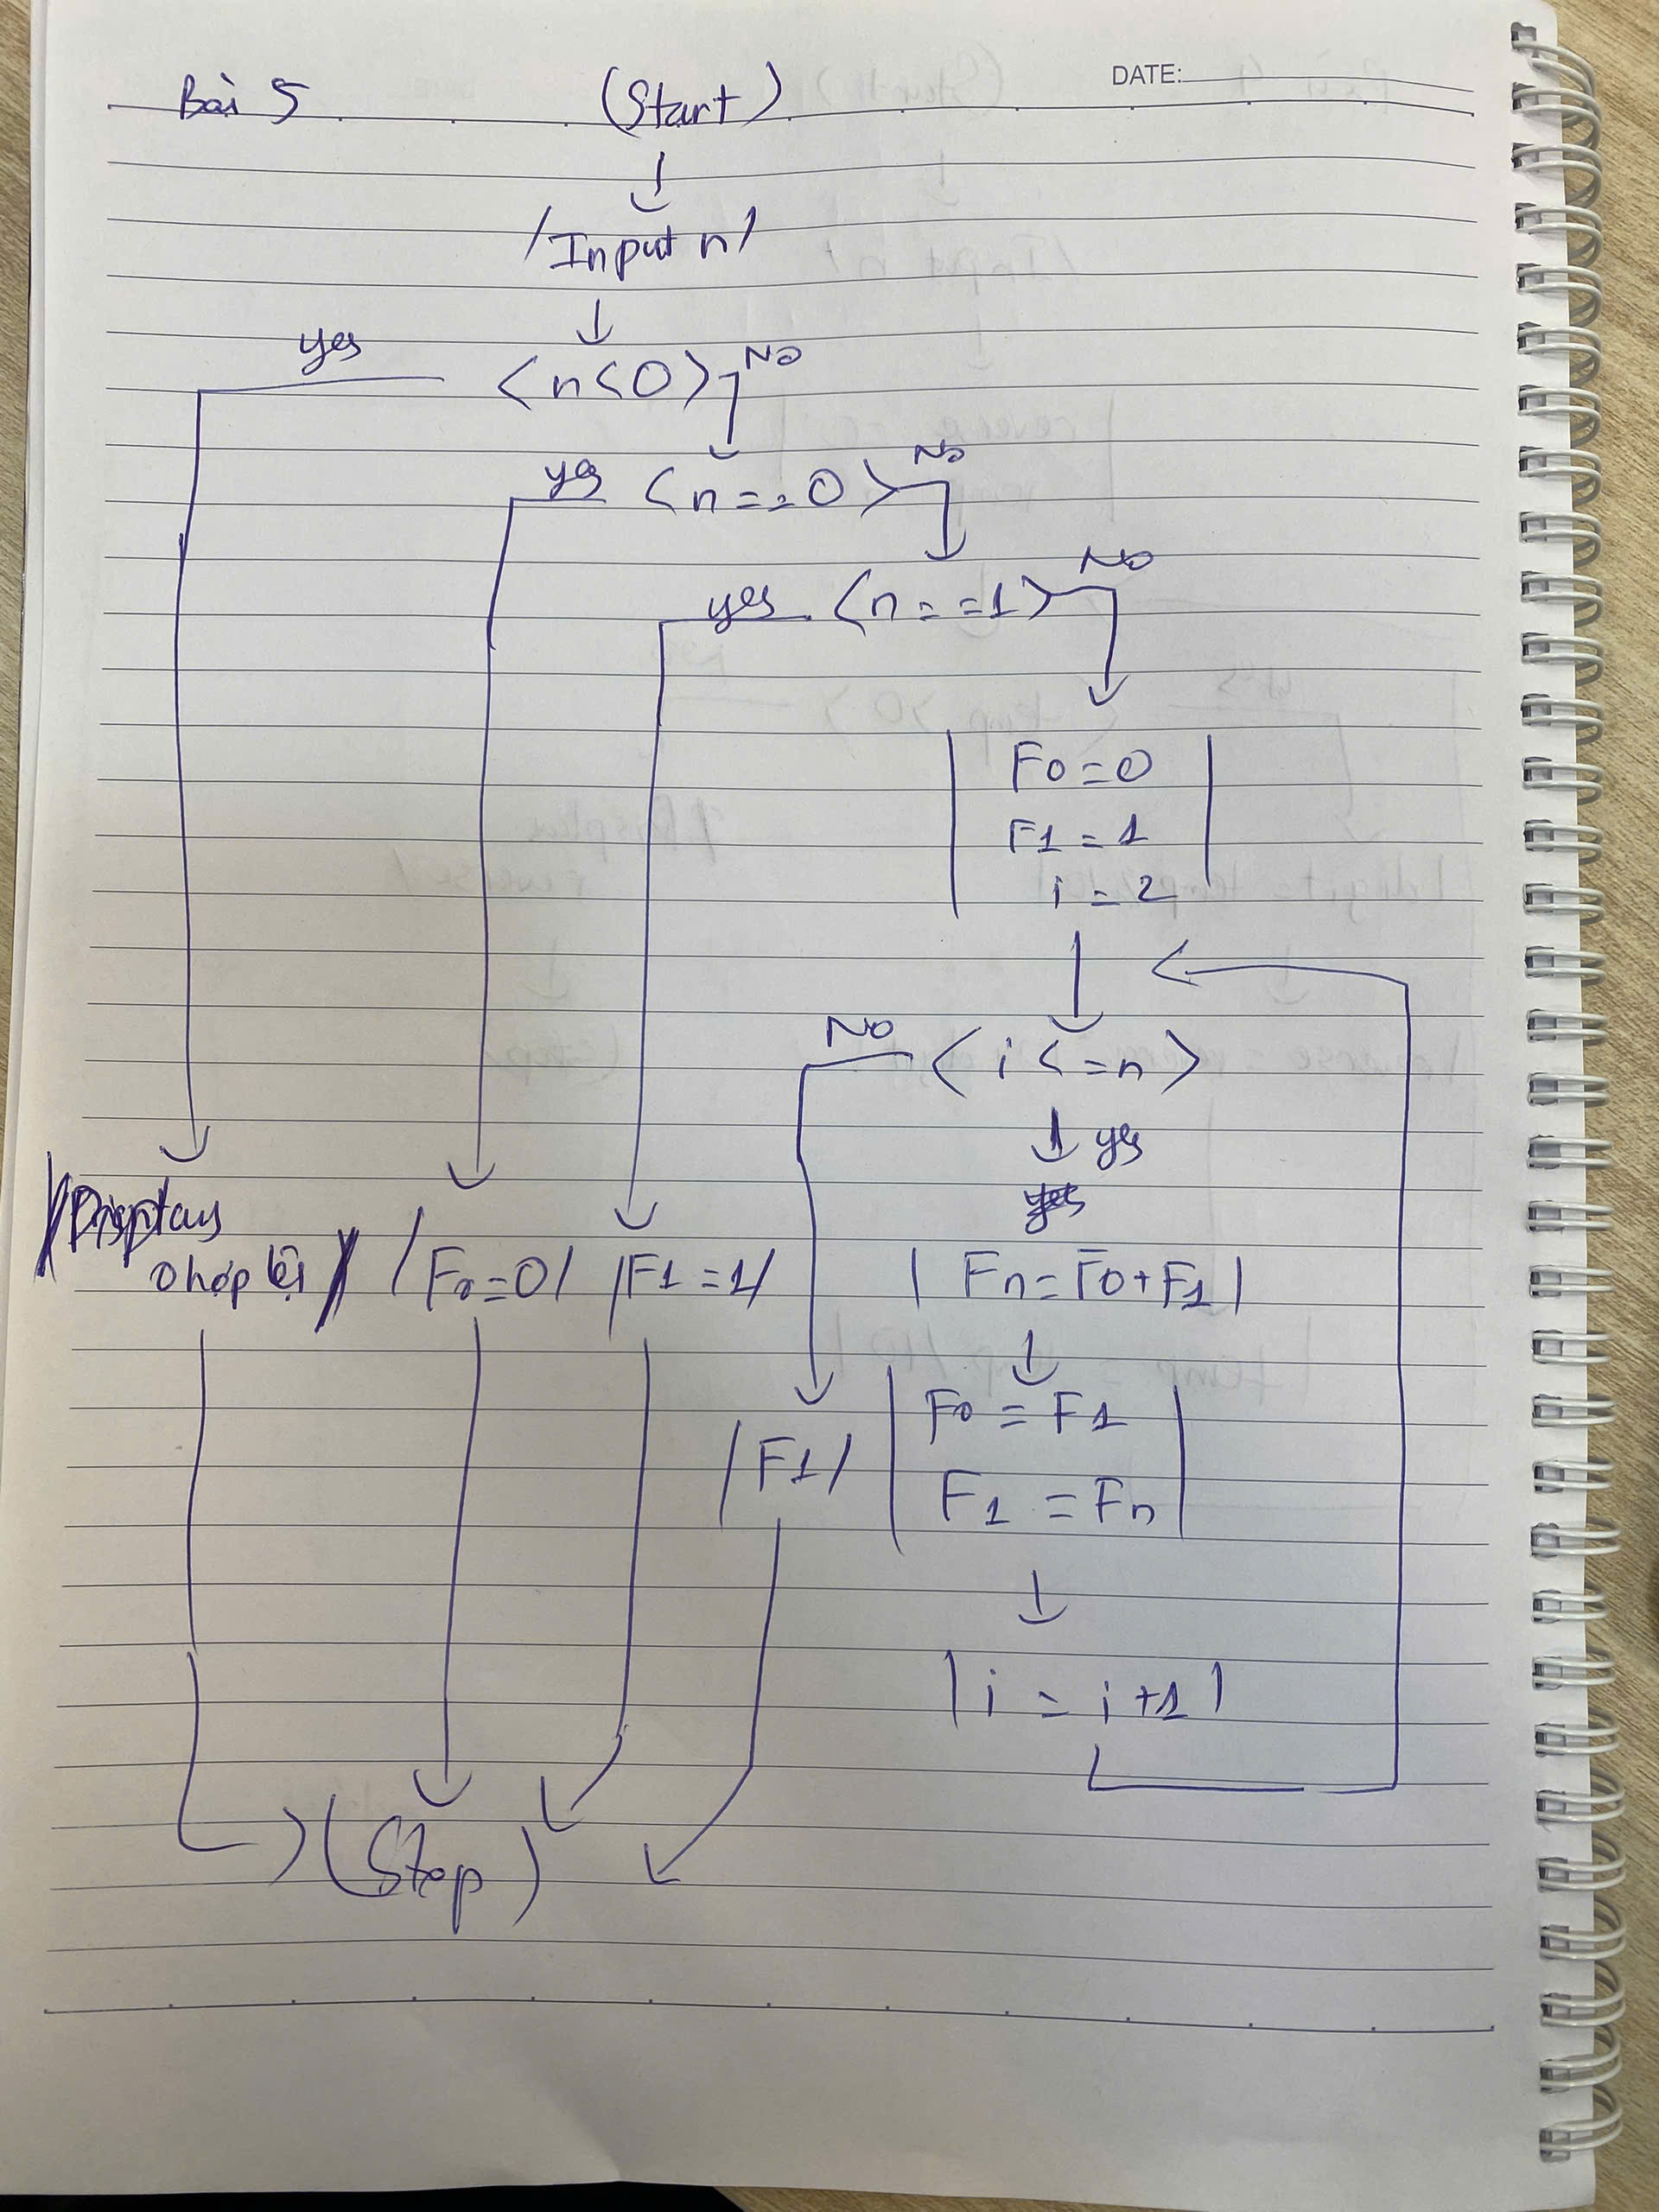 DATE:
Bài 5 (Start)
/Input n/
yes <n<0> No
yes <n==0> No
yes <n==1> No
| F0=0 |
F1=1
i=2
No <i<=n>
yes
yes
/Display
0 hợp lệ/ /F0=0/ /F1=1/ | Fn=F0+F1 |
| F0=F1 |
/F1/
F1=Fn
| i=i+1 |
(Stop)